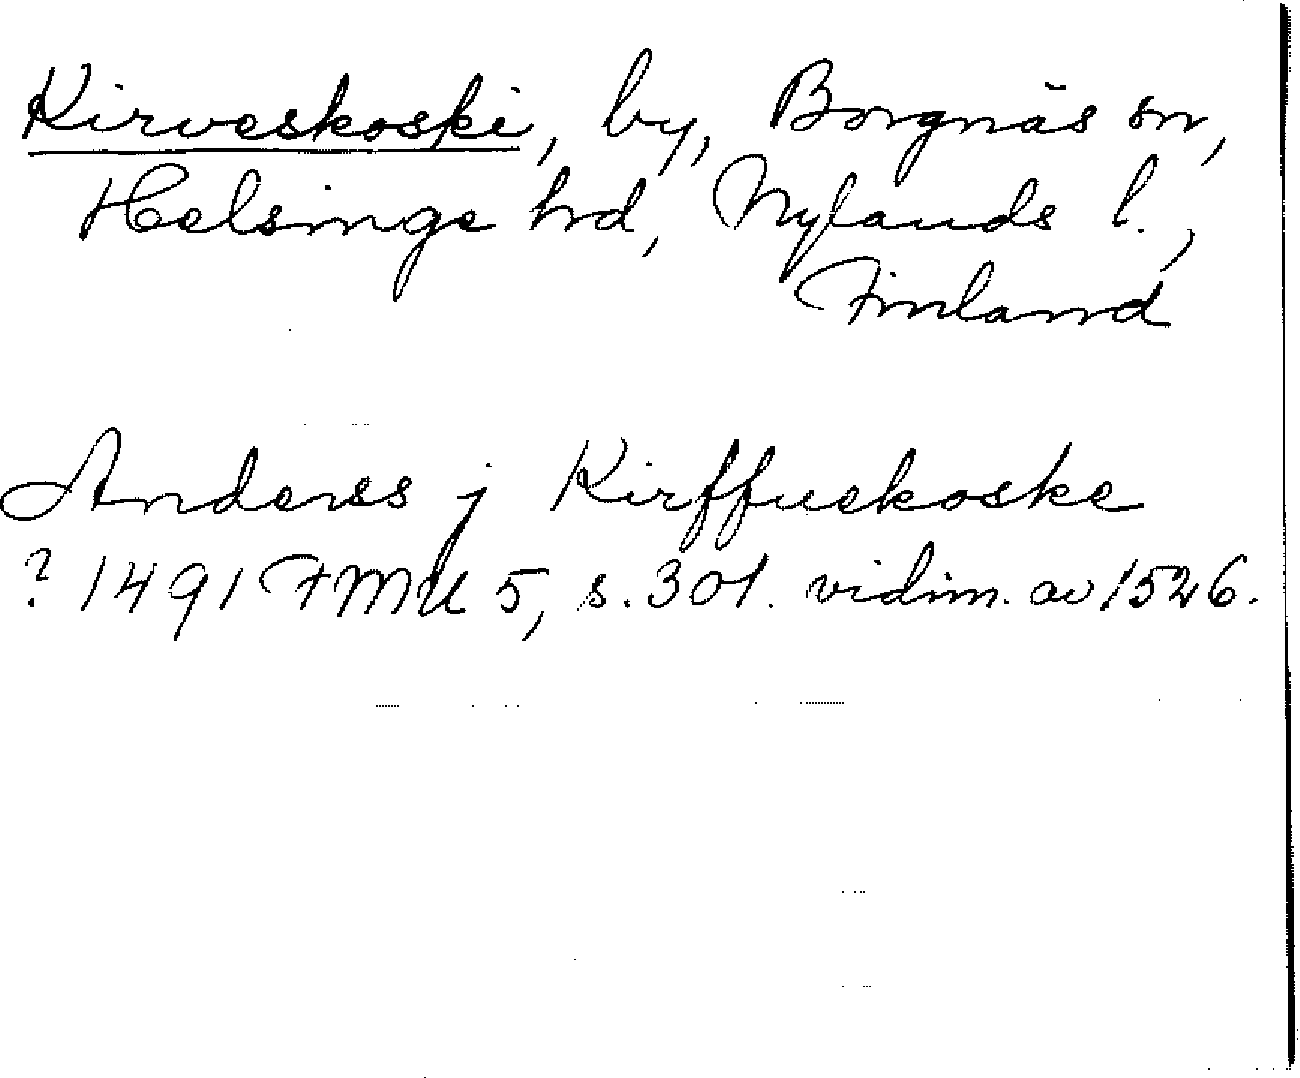 Kirveskoski, by, Borgnäs sn,
Helsinge hrd, Nylands l.,
Finland
Anderss j Kirffueskoske
? 1491 FMU 5, s. 301. vidim. av 1526.